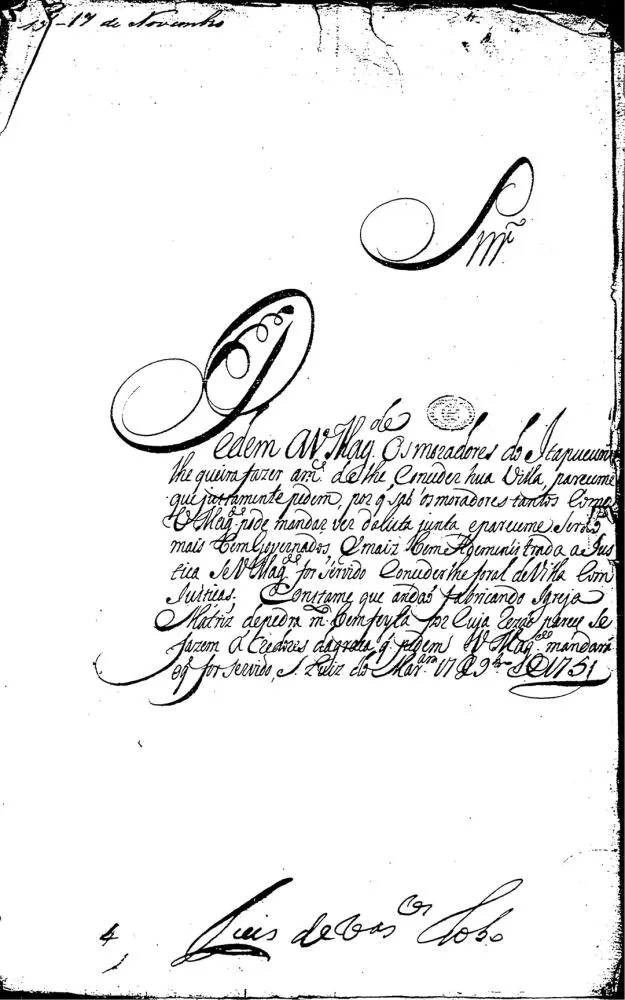 17 de Novembro
Snr.
Pedem a V. Mag.de Os moradores do Itapucurú
lhe queira fazer a m.ce de lhe Conceder hua Villa, pareceme
que justamente pedem, por q' são os moradores tantos Como
V. Mag.de pode mandar ver da lista junta e pareceme Serão
mais bem Governados, e mais bem Administrada a Jus
tiça se V. Mag.de for servido Concederlhe foral de Villa Com
Justiças. Constame que andão fabricando Igreja
Matriz de pedra m.to bem feyta por Cuja Rezão parece se
fazem a Credores da graça q' pedem V. Mag.de mandará
o q' for servido, S. Luiz do Mar.am 17 de 9.bro de 1751
Luis de Vas.cos Lobo
4